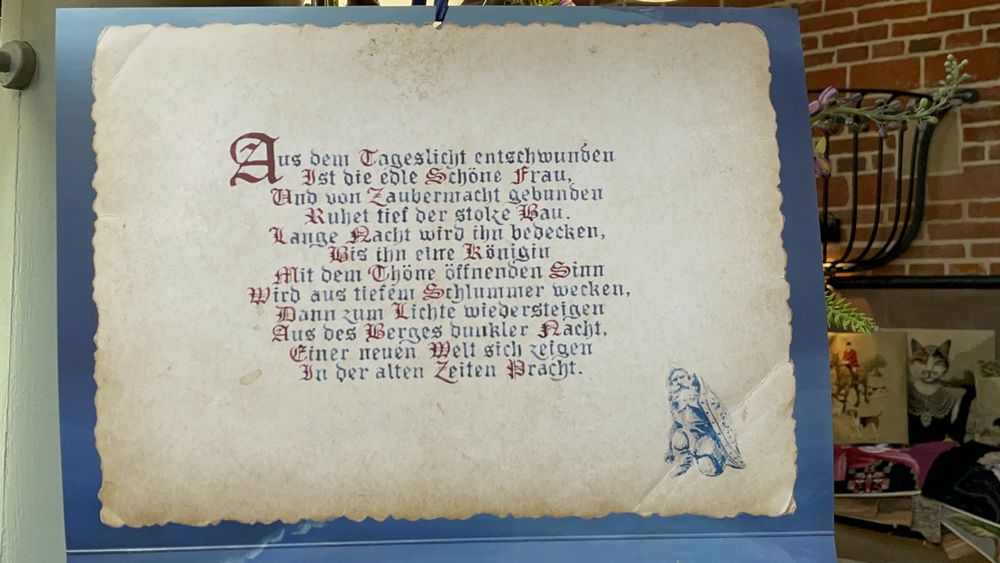 Aus dem Tageslicht entschwunden
Ist die edle Schöne Frau,
Und von Zaubermacht gebunden
Ruhet tief der stolze Bau.
Lange Nacht wird ihn bedecken,
Bis ihn eine Königin
Mit dem Thöne öffnenden Sinn
Wird aus tiefem Schlummer wecken,
Dann zum Lichte wiedersteigen
Aus des Berges dunkler Nacht,
Einer neuen Welt sich zeigen
In der alten Zeiten Pracht.